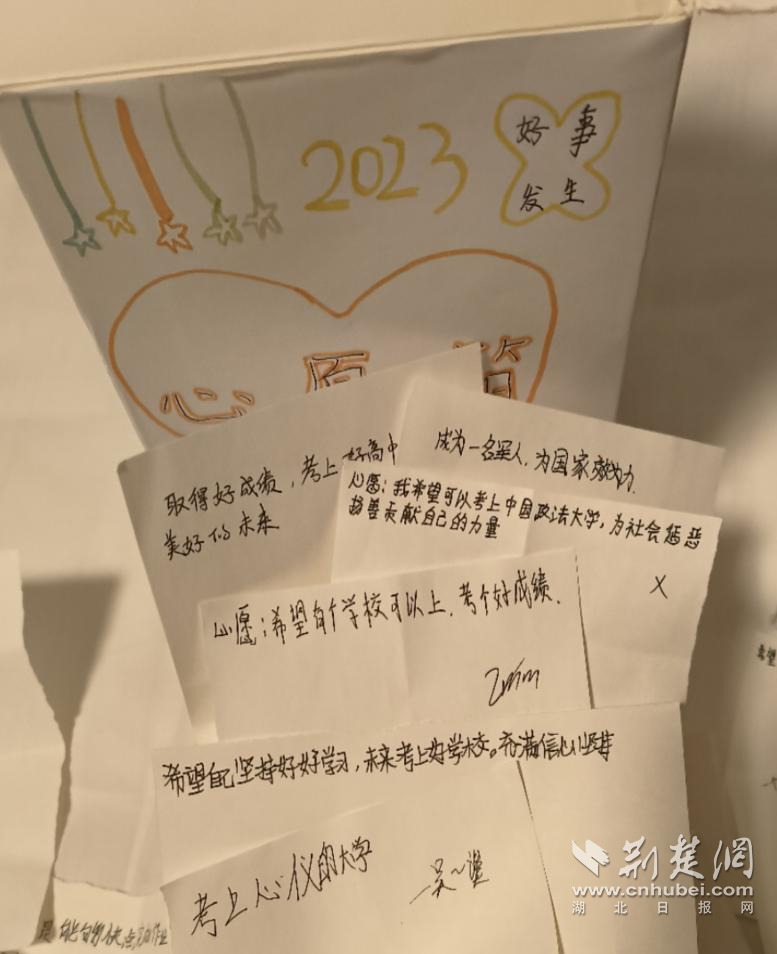 2023
好事
发生
心愿
取得好成绩，考上 好高中
美好的未来
成为一名军人，为国家效力
心愿：我希望可以考上中国政法大学，为社会惩恶
扬善贡献自己的力量
X
心愿：希望有个学校可以上，考个好成绩．
希望自己坚持好好学习，未来考上好学校。充满信心坚持
考上心仪的大学
希望
荆楚网
www.cnhubei.com
湖北日报网